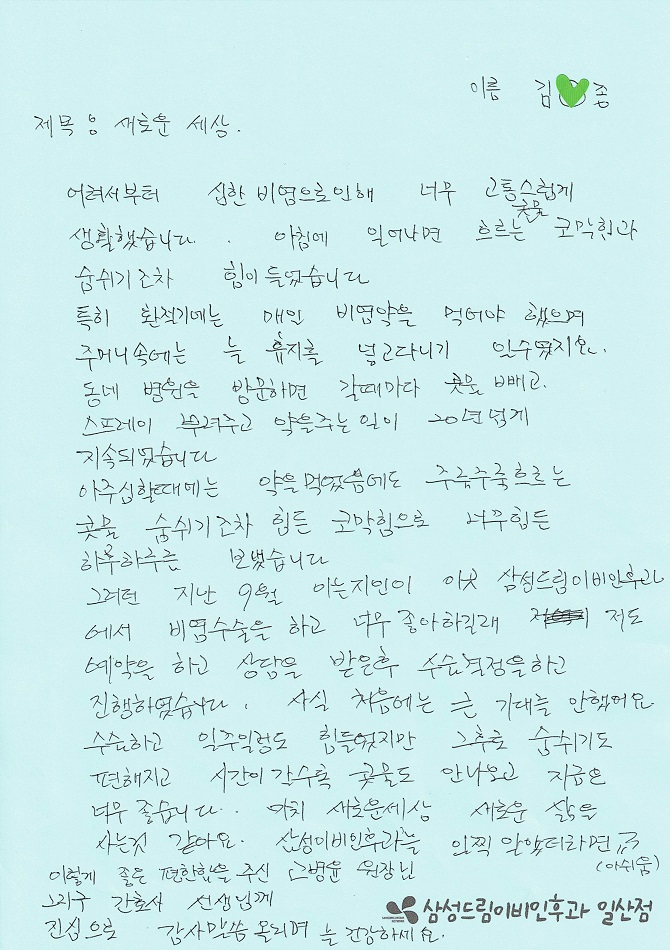 이름 김 종
제목 : 새로운 세상.
어려서부터 심한 비염으로인해 너무 고통스럽게
생활했습니다. 아침에 일어나면 흐르는 콧물 코막힘과
숨쉬기조차 힘이들었습니다
특히 환절기에는 매일 비염약을 먹어야 했으며
주머니속에는 늘 휴지를 넣고다니기 일수였지요.
동네 병원을 방문하면 갈때마다 콧물 빼고.
스프레이 뿌려주고 약을주는일이 20년넘게
지속되었습니다
아주심할때에는 약을먹었음에도 주륵주륵흐르는
콧물 숨쉬기조차 힘든 코막힘으로 너무힘든
하루하루를 보냈습니다
그러던 지난 9월 아는지인이 이곳 삼성드림이비인후과
에서 비염수술을 하고 너무 좋아하길래 저도
예약을 하고 상담을 받은후 수술결정을하고
진행하였습니다. 사실 처음에는 큰 기대를 안했어요
수술하고 일주일정도 힘들었지만 그후로 숨쉬기도
편해지고 시간이갈수록 콧물도 안나오고 지금은
너무 좋습니다. 마치 새로운세상 새로운 삶을
사는것 같아요. 삼성이비인후과를 일찍 알았더라면
(아쉬움)
이렇게 좋은 편한함을 주신 원장님
그리구 간호사 선생님께
진심으로 감사말씀 올리며 늘 건강하세요.
삼성드림이비인후과 일산점